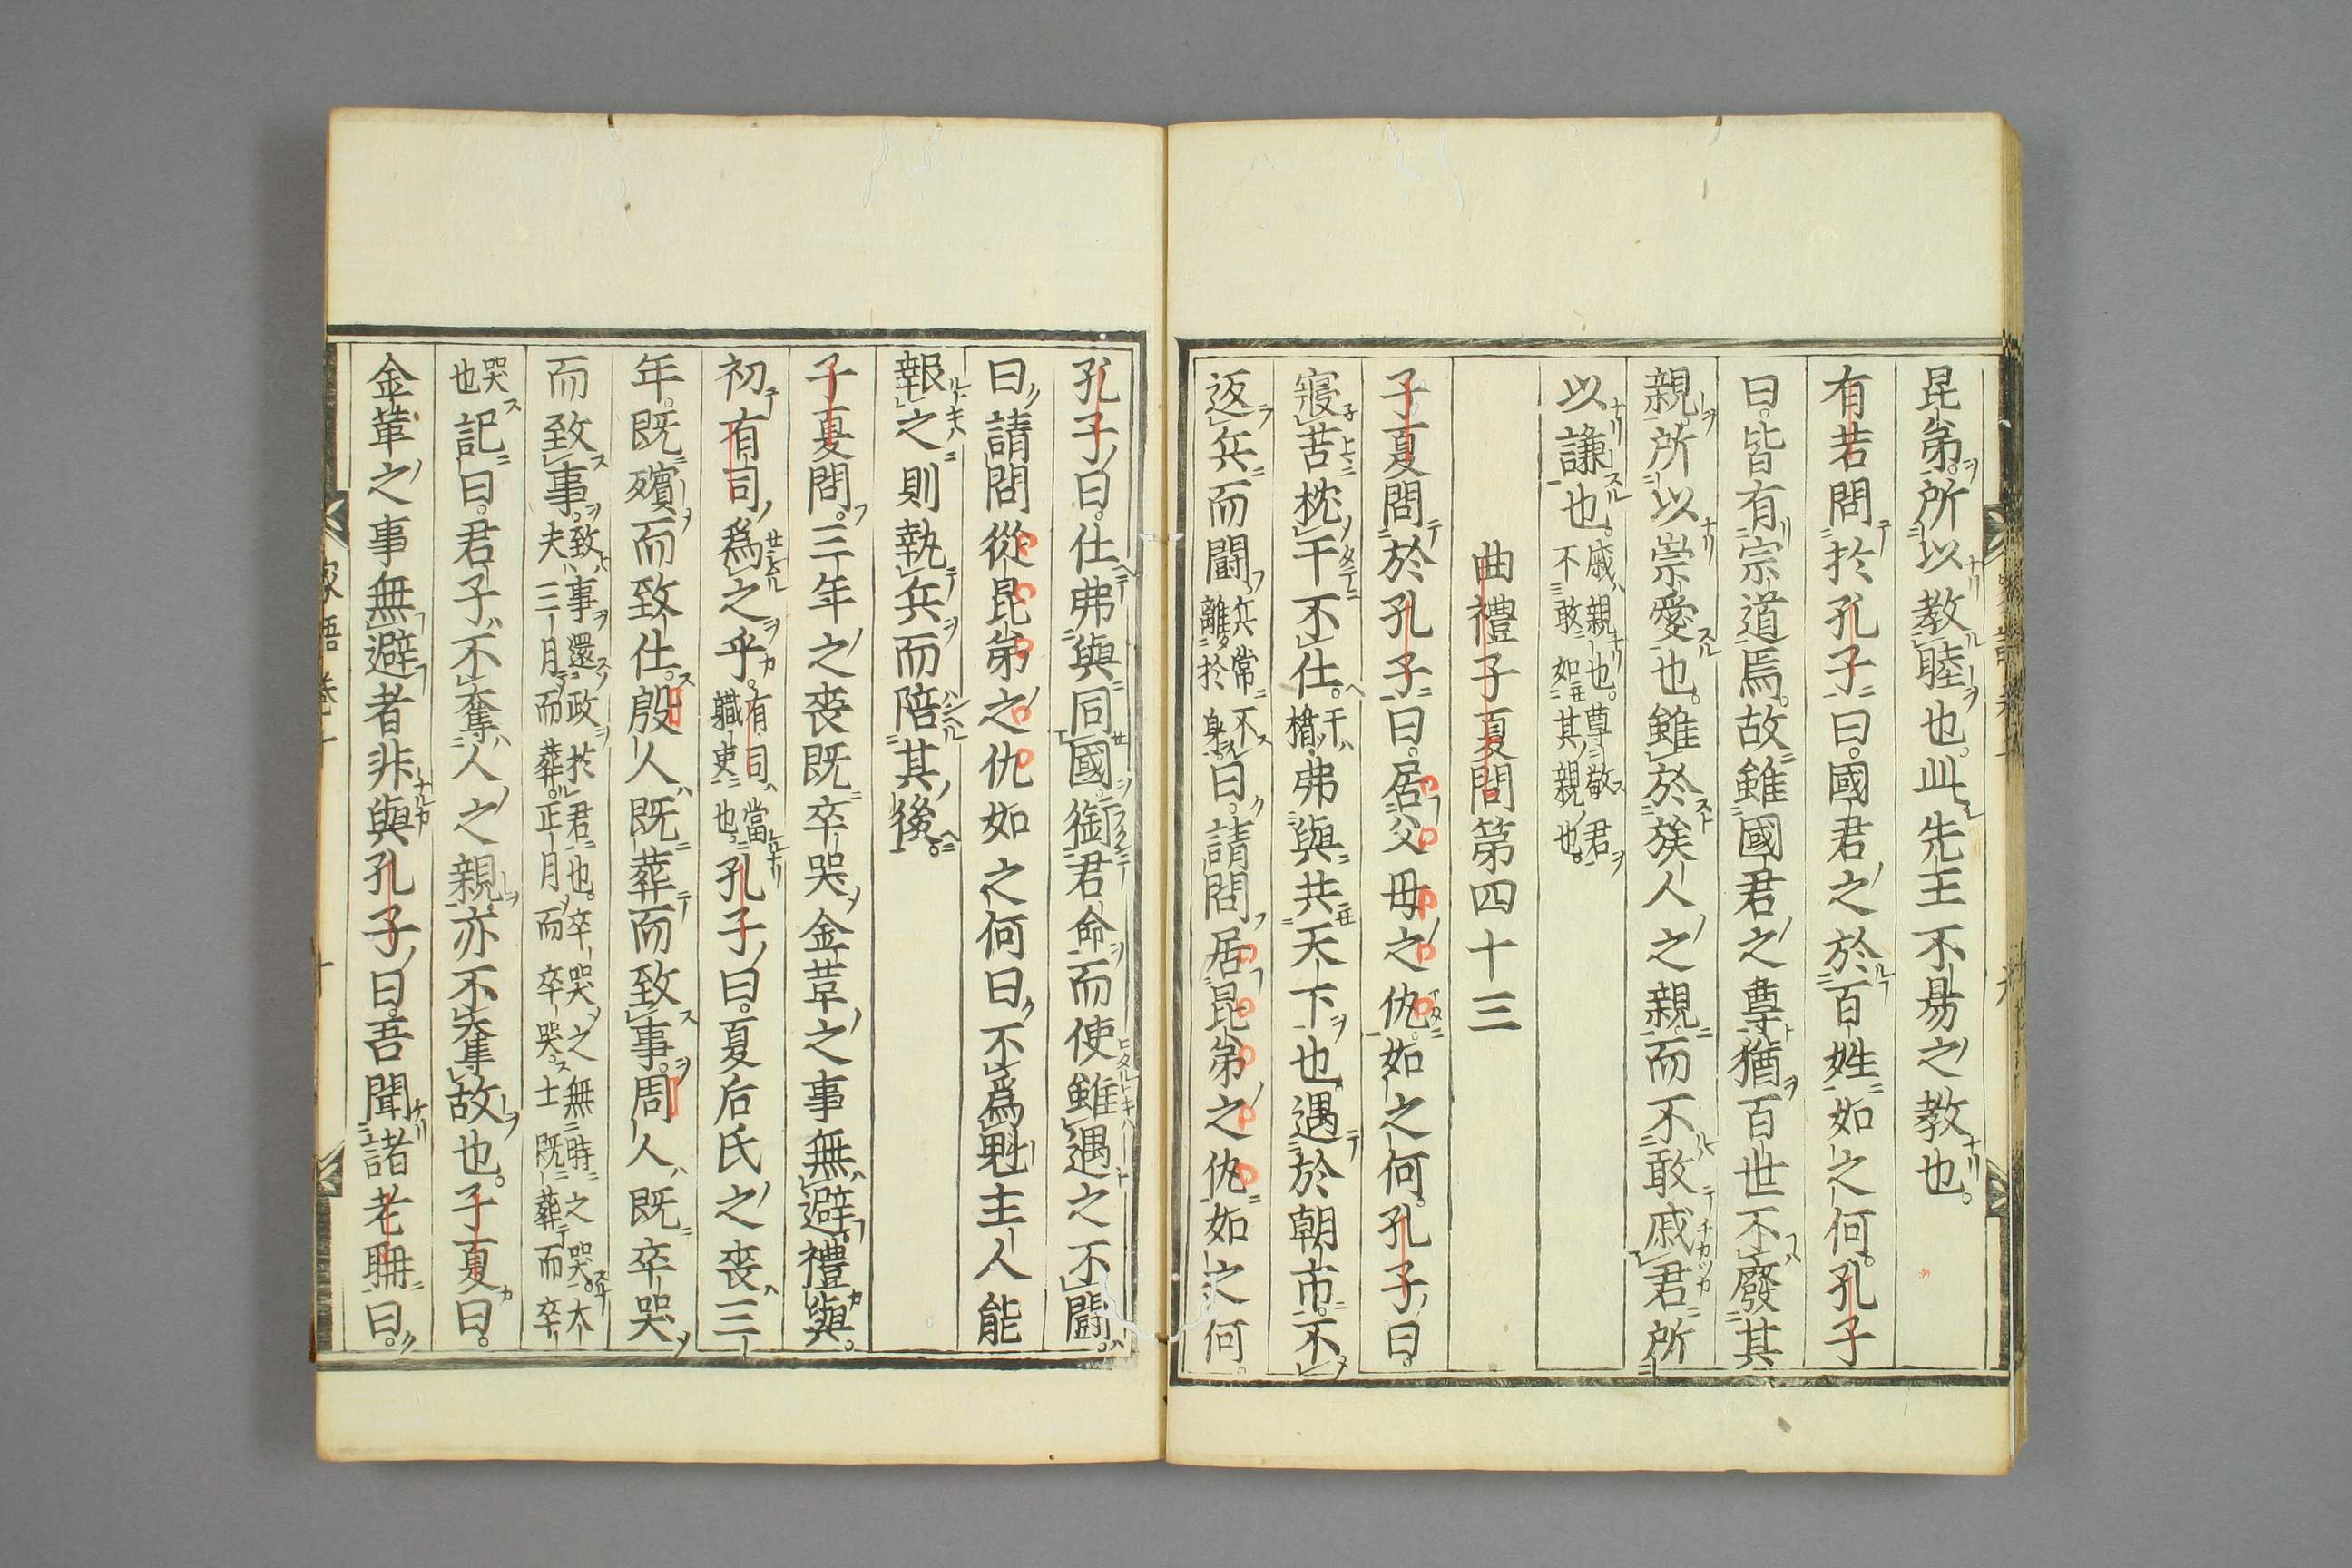 昆弟。所以教睦也。此先王不易之教也。
有若問於孔子曰。國君之於百姓如之何。孔子
曰。皆有宗道焉。故雖國君之尊猶百世不廢其
親。所以崇愛也。雖於族人之親。而不敢戚君所
以謙也。戚親也。尊敬君
不敢如其親也。
曲禮子夏問第四十三
子夏問於孔子曰。居父母之仇。如之何。孔子曰。
寢苫枕干不仕。干
楯弗與共天下也。遇於朝市。不
返兵而鬪。兵常不
離於身。曰。請問居昆弟之仇如之何。
孔子曰。仕弗與同國。銜君命而使雖遇之不鬪。
曰。請問從昆弟之仇如之何曰。不爲魁主人能
報之則執兵而陪其後。
子夏問。三年之喪既卒哭金革之事無避。禮與。
初有司爲之乎。有司當
職吏也。孔子曰。夏后氏之喪三
年。既殯而致仕。殷人既葬而致事。周人既卒哭
而致事。致事還政於君也。卒哭之無時之哭。大
夫三月而葬。正月而卒哭。士既葬而卒
哭
也記曰。君子不奪人之親亦不奪故也。子夏曰。
金革之事無避者非與孔子曰。吾聞諸老聃曰。
家語卷十
十